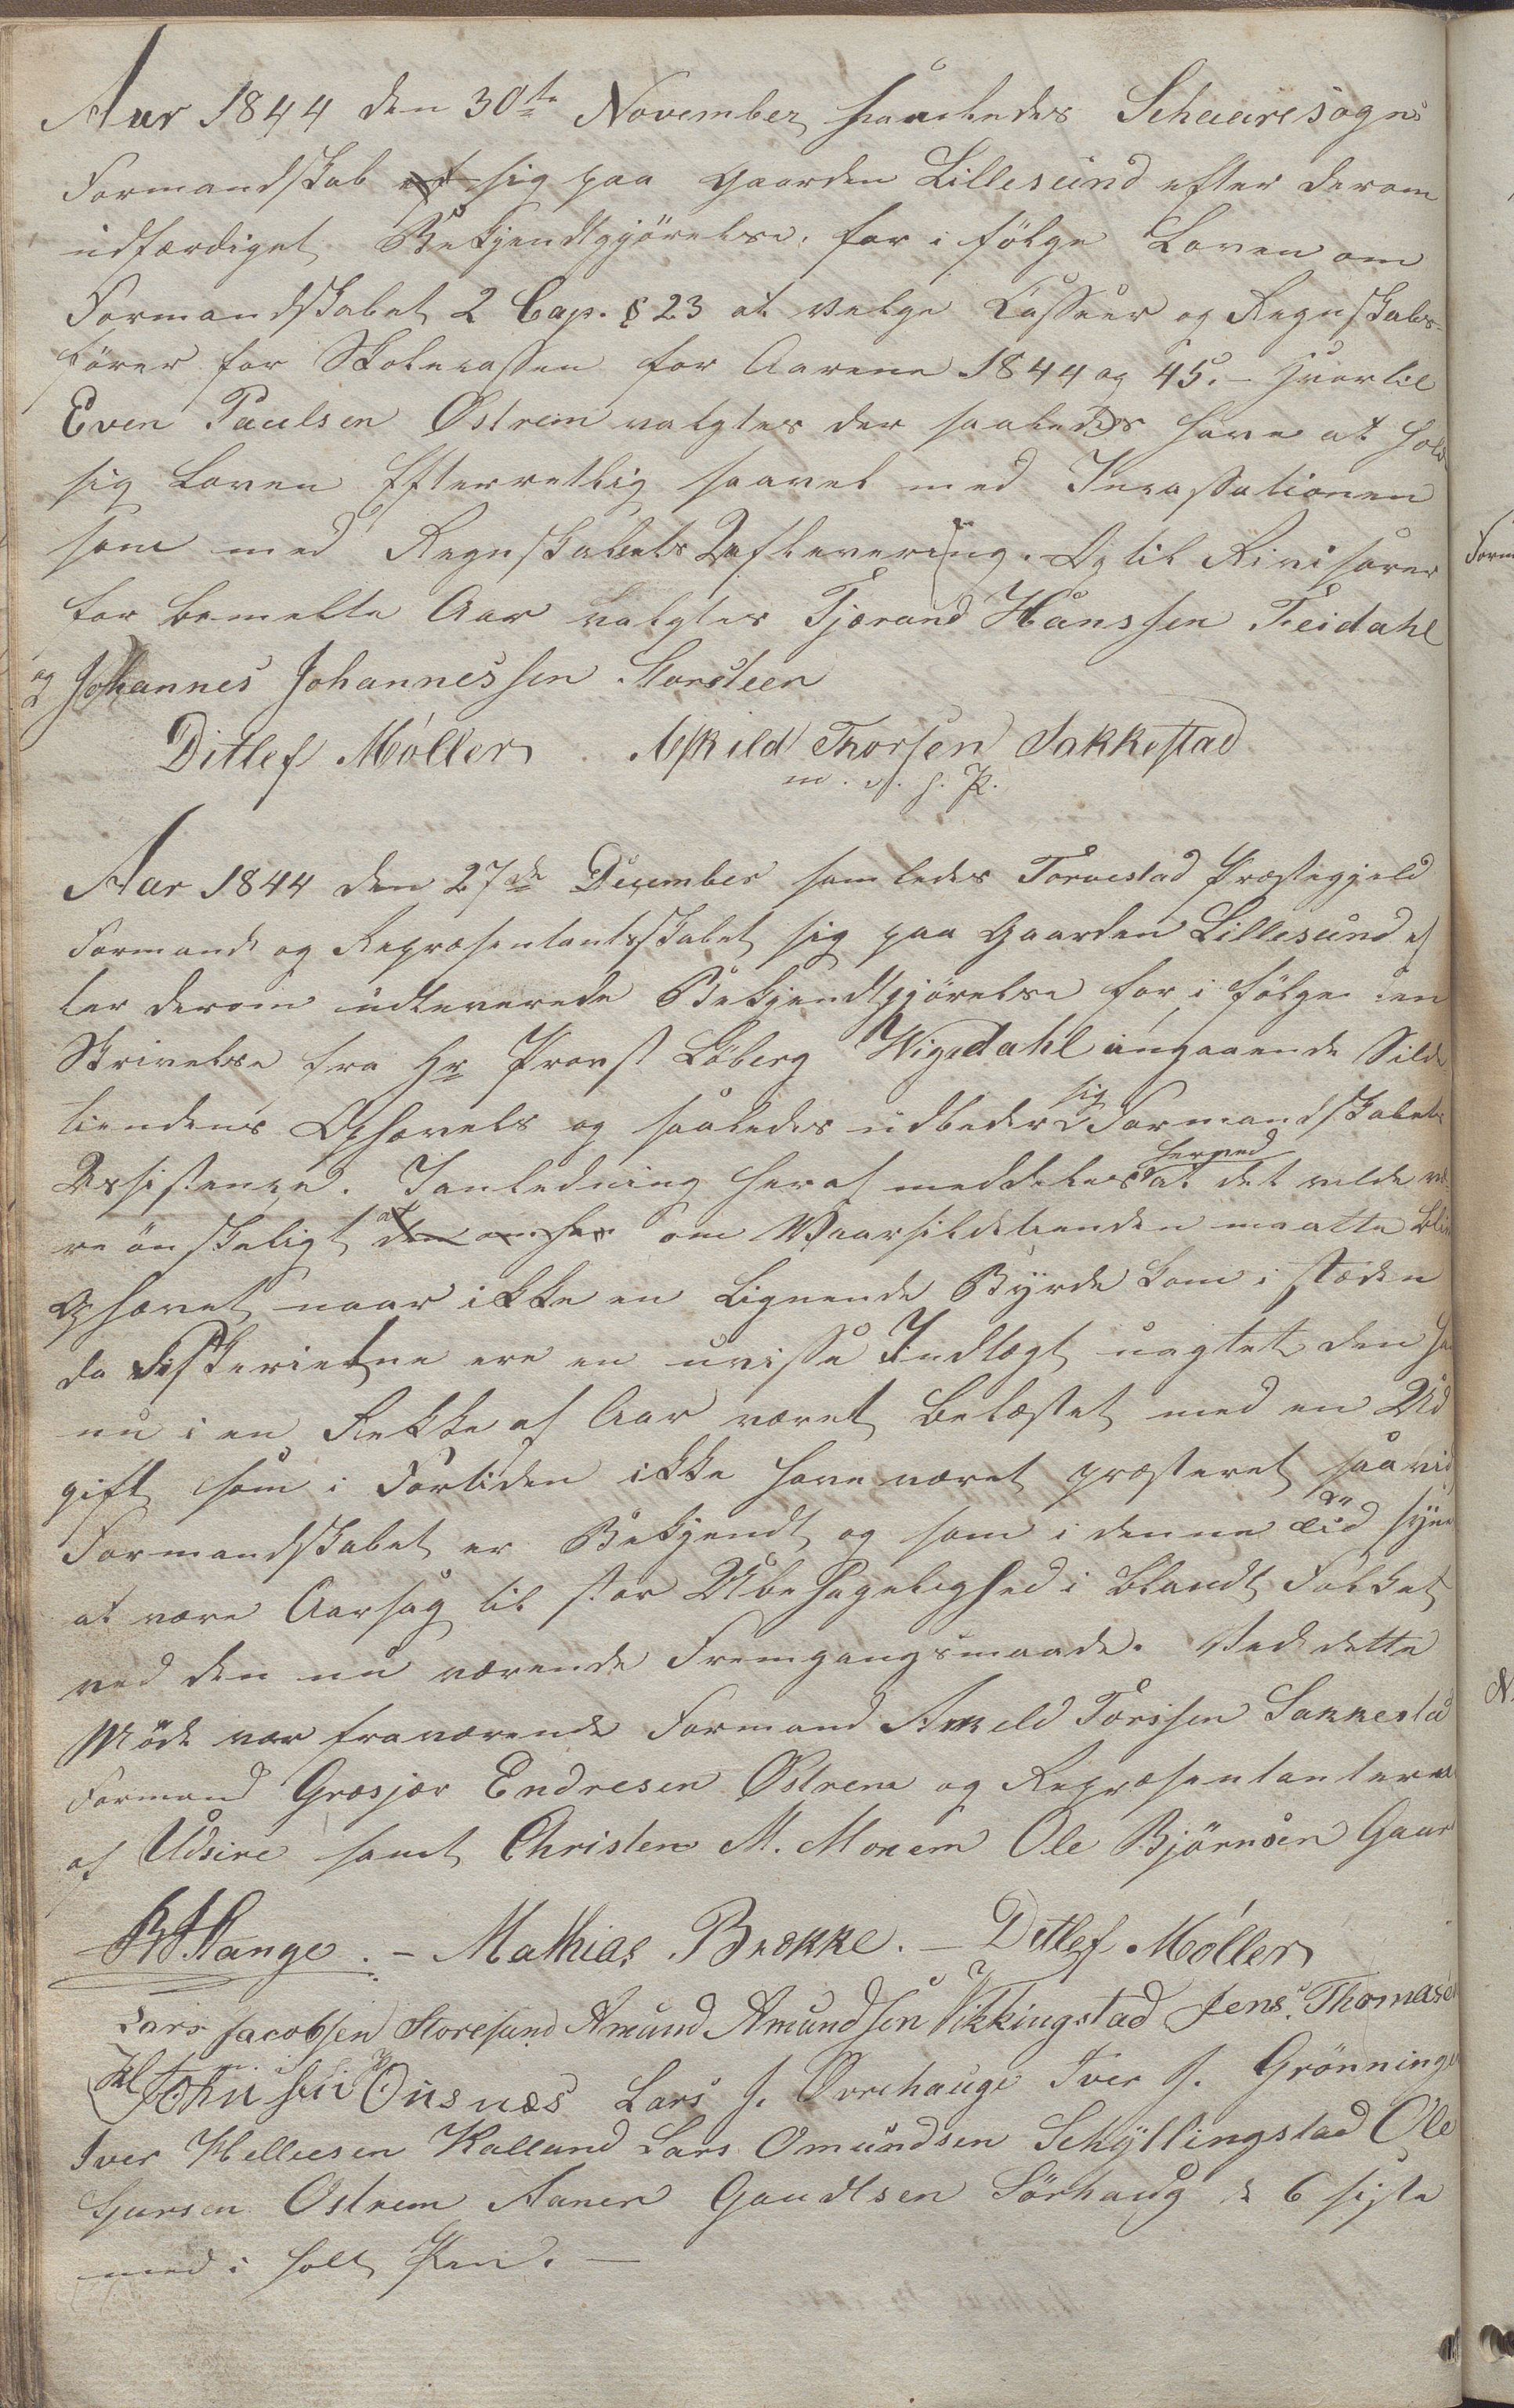 Aar 1844 den 30te November saaledes Schaaresogns
Formandskab sig paa Gaarden Lillesund efter derom
udfærdiget Bekjendtgjörelse, for i fölge Loven om
Formandskabet 2 Cap. § 23 at velge Casseer og Regnskabs-
förer for Skolecassen for Aarene 1844 og 45. - Hvortil
Even Paulsen Østrem valgtes der saaledes have at hold
sig Loven Efterrettlig saavel med Incassationen
som med Regnskabets Aflevering. Og til Revisorer
for bemelte Aar valgtes Tjærand Hanssen Feidahl
og Johannes Johannessen Storsteen
Ditlef Møller. Askild Thorsen Sakkestad
m. i. h. P.
Aar 1844 den 27de December samledes Torvestad Præstegjeld
Formands og Repræsentantsskabet sig paa Gaarden Lillesund ef
ter derom udleverede Bekjendtgjörelse for i fölge en
Skrivelse fra Hr Provst Löberg Wigedahl angaaende Silde
tiendens Ophævels og saaledes udbeder sig Formandskabets
Assistence. Ianledning heraf meddeles herved at det vilde væ
re önskeligt om Vaarsildetienden maatte bliv
Ophævet naar ikke en Lignende Byrde kom i stæden
da Fiskerierne ere en uvisse Indtægt uagtet den ha
nu i en Rekke af Aar været Belæstet med en Ud
gift som i Fortiden ikke have været præsteret saavid
Formandskabet er Bekjendt og som i denne Tid synes
at være Aarsag til stor Ubehagelighed i blandt Folket
ved den nu værende Fremgangsmaade. Ved dette
Møde var fraværende Formand Askeld Torssen Sakkesta
Formand Græsjær Endresen Østrem og Repræsentanterne
af Udsire samt Christen M. Moxem Ole Björnsen Gaar
Stange. - Mathias Brekke. - Ditlef Møller
Lars Jacobsen Storesund Amund Amundsen Vikkingstad Jens Thomasen
Johnsen Onsnæs Lars J. Øvrehauge Iver J. Grönninge
Iver Helliesen Kalland Lars Omundsen Schyllingstad Ole
Østrem Aanen Gaudtsen Sörhaug de 6 siste
med i holt Pen. -